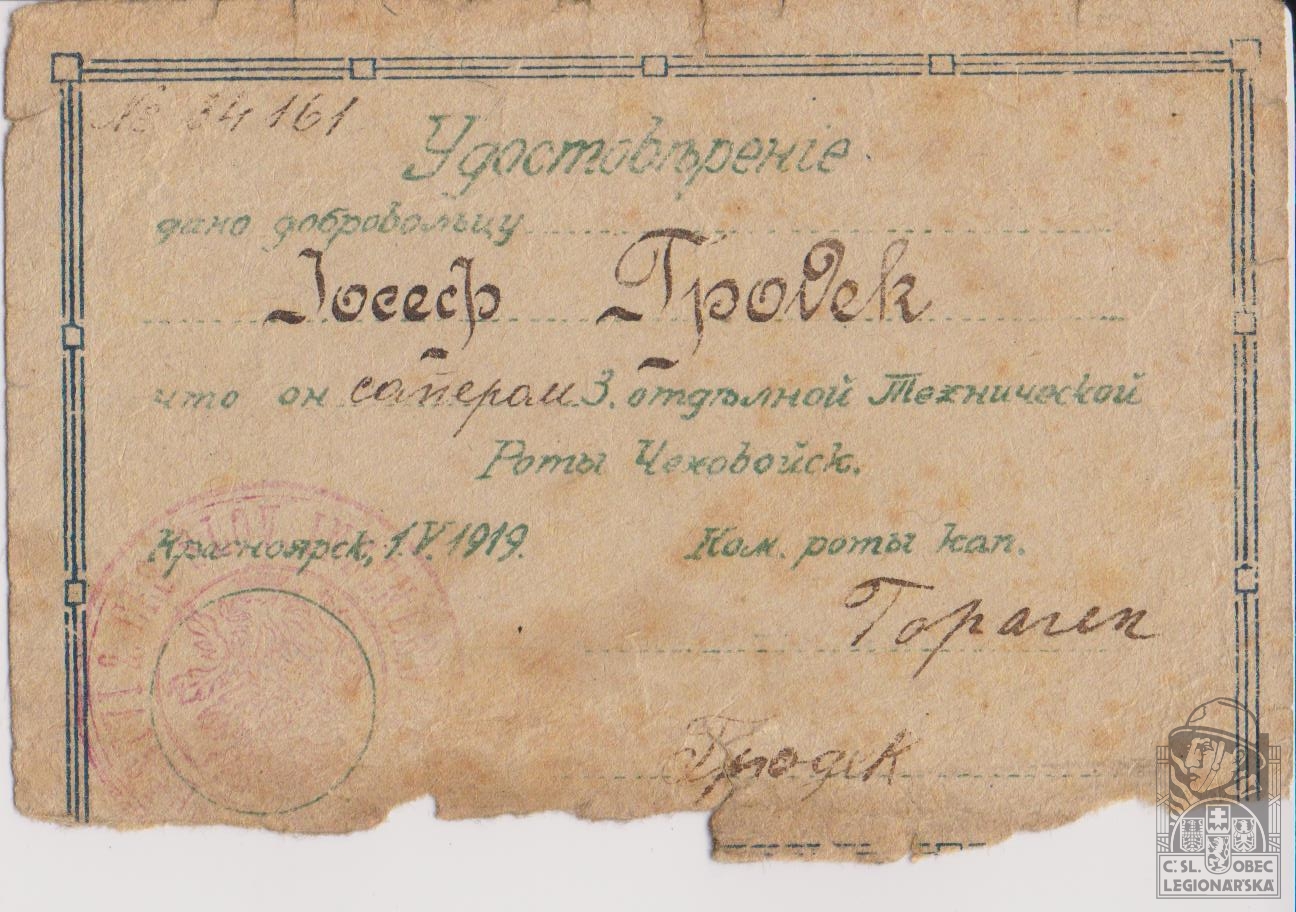 № 34161
Удостовѣреніе
дано добровольцу
Іосеф Гродек
что он сапером 3. отдѣлной Технической
Роты Чеховойск.
Красноярск, 1.V.1919.
Ком. роты кап.
Гораген
Гродек
Č.SL. OBEC
LEGIONÁŘSKÁ